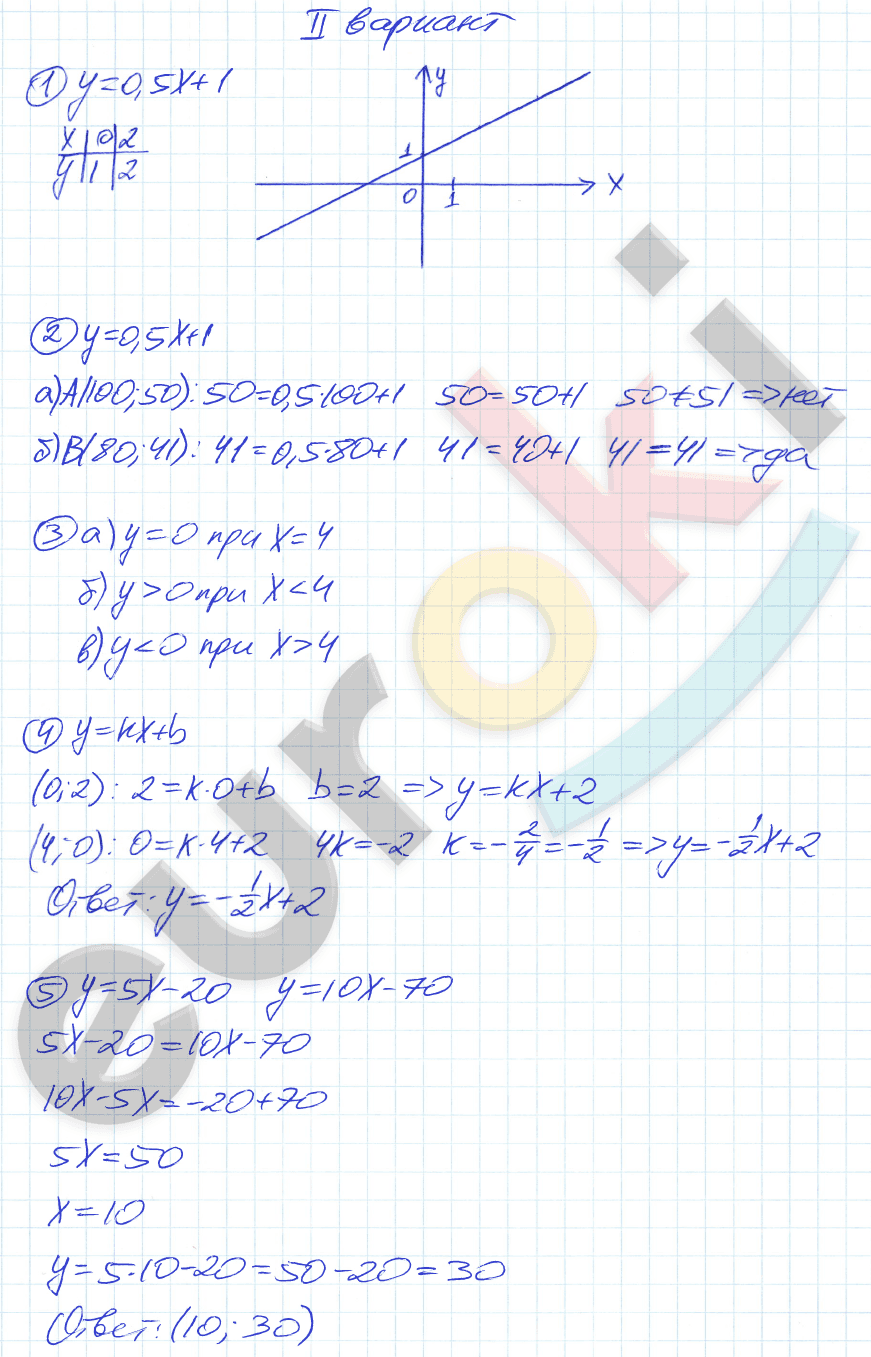 II вариант
① y=0,5x+1
x | 0 | 2
y | 1 | 2
y
1
0
1
x
② y=0,5x+1
а) A(100;50): 50=0,5·100+1 50=50+1 50≠51 => нет
б) B(80;41): 41=0,5·80+1 41=40+1 41=41 => да
③ а) y=0 при x=4
б) y>0 при x<4
в) y<0 при x>4
④ y=kx+b
(0;2): 2=k·0+b b=2 => y=kx+2
(4;0): 0=k·4+2 4k=-2 k=-2/4=-1/2 => y=-1/2x+2
Ответ: y=-1/2x+2
⑤ y=5x-20 y=10x-70
5x-20=10x-70
10x-5x=-20+70
5x=50
x=10
y=5·10-20=50-20=30
Ответ: (10;30)
euroki